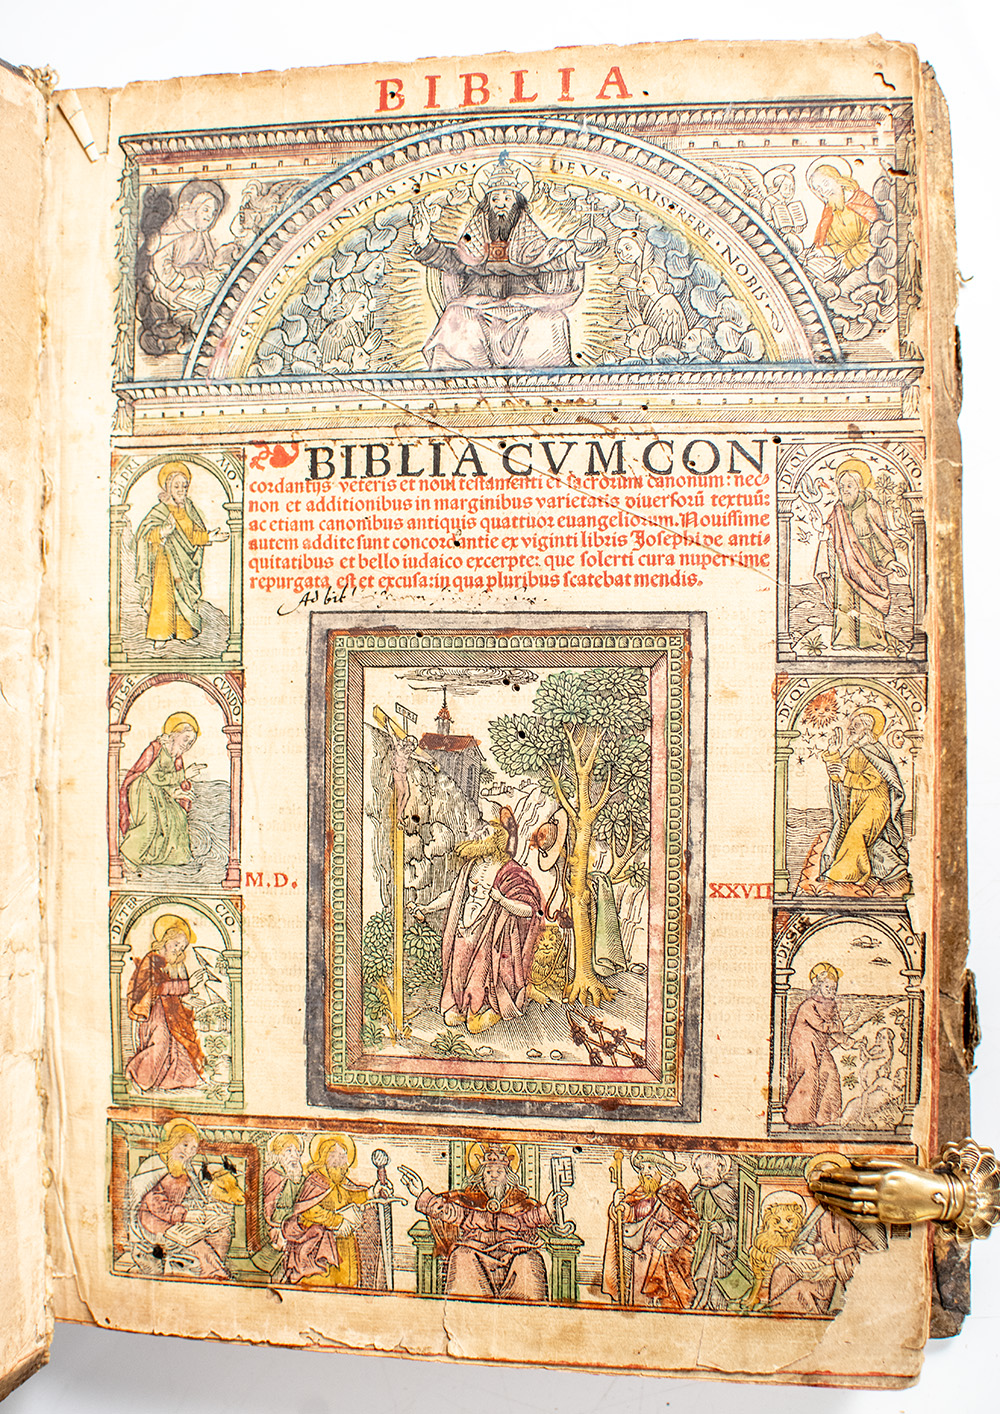 BIBLIA.
SANCTA · TRINITAS · VNVS · DEVS · MISERERE · NOBIS
BIBLIA CVM CON
cordantijs veteris et noui testamenti et sacrorum canonum: nec-
non et additionibus in marginibus varietatis diuersorū textuū:
ac etiam canonibus antiquis quattuor euangeliorum. Nouissime
autem addite sunt concordantie ex viginti libris Josephi de anti-
quitatibus et bello iudaico excerpte: que solerti cura nuperrime
repurgata est et excusa: in qua pluribus scatebat mendis.
Ad bibl
DI PRI MO.
DI SE CVNDO
DI TER CIO.
DI QV INTO
DI QV ARTO.
DI SEX TO.
M.D. XXVII